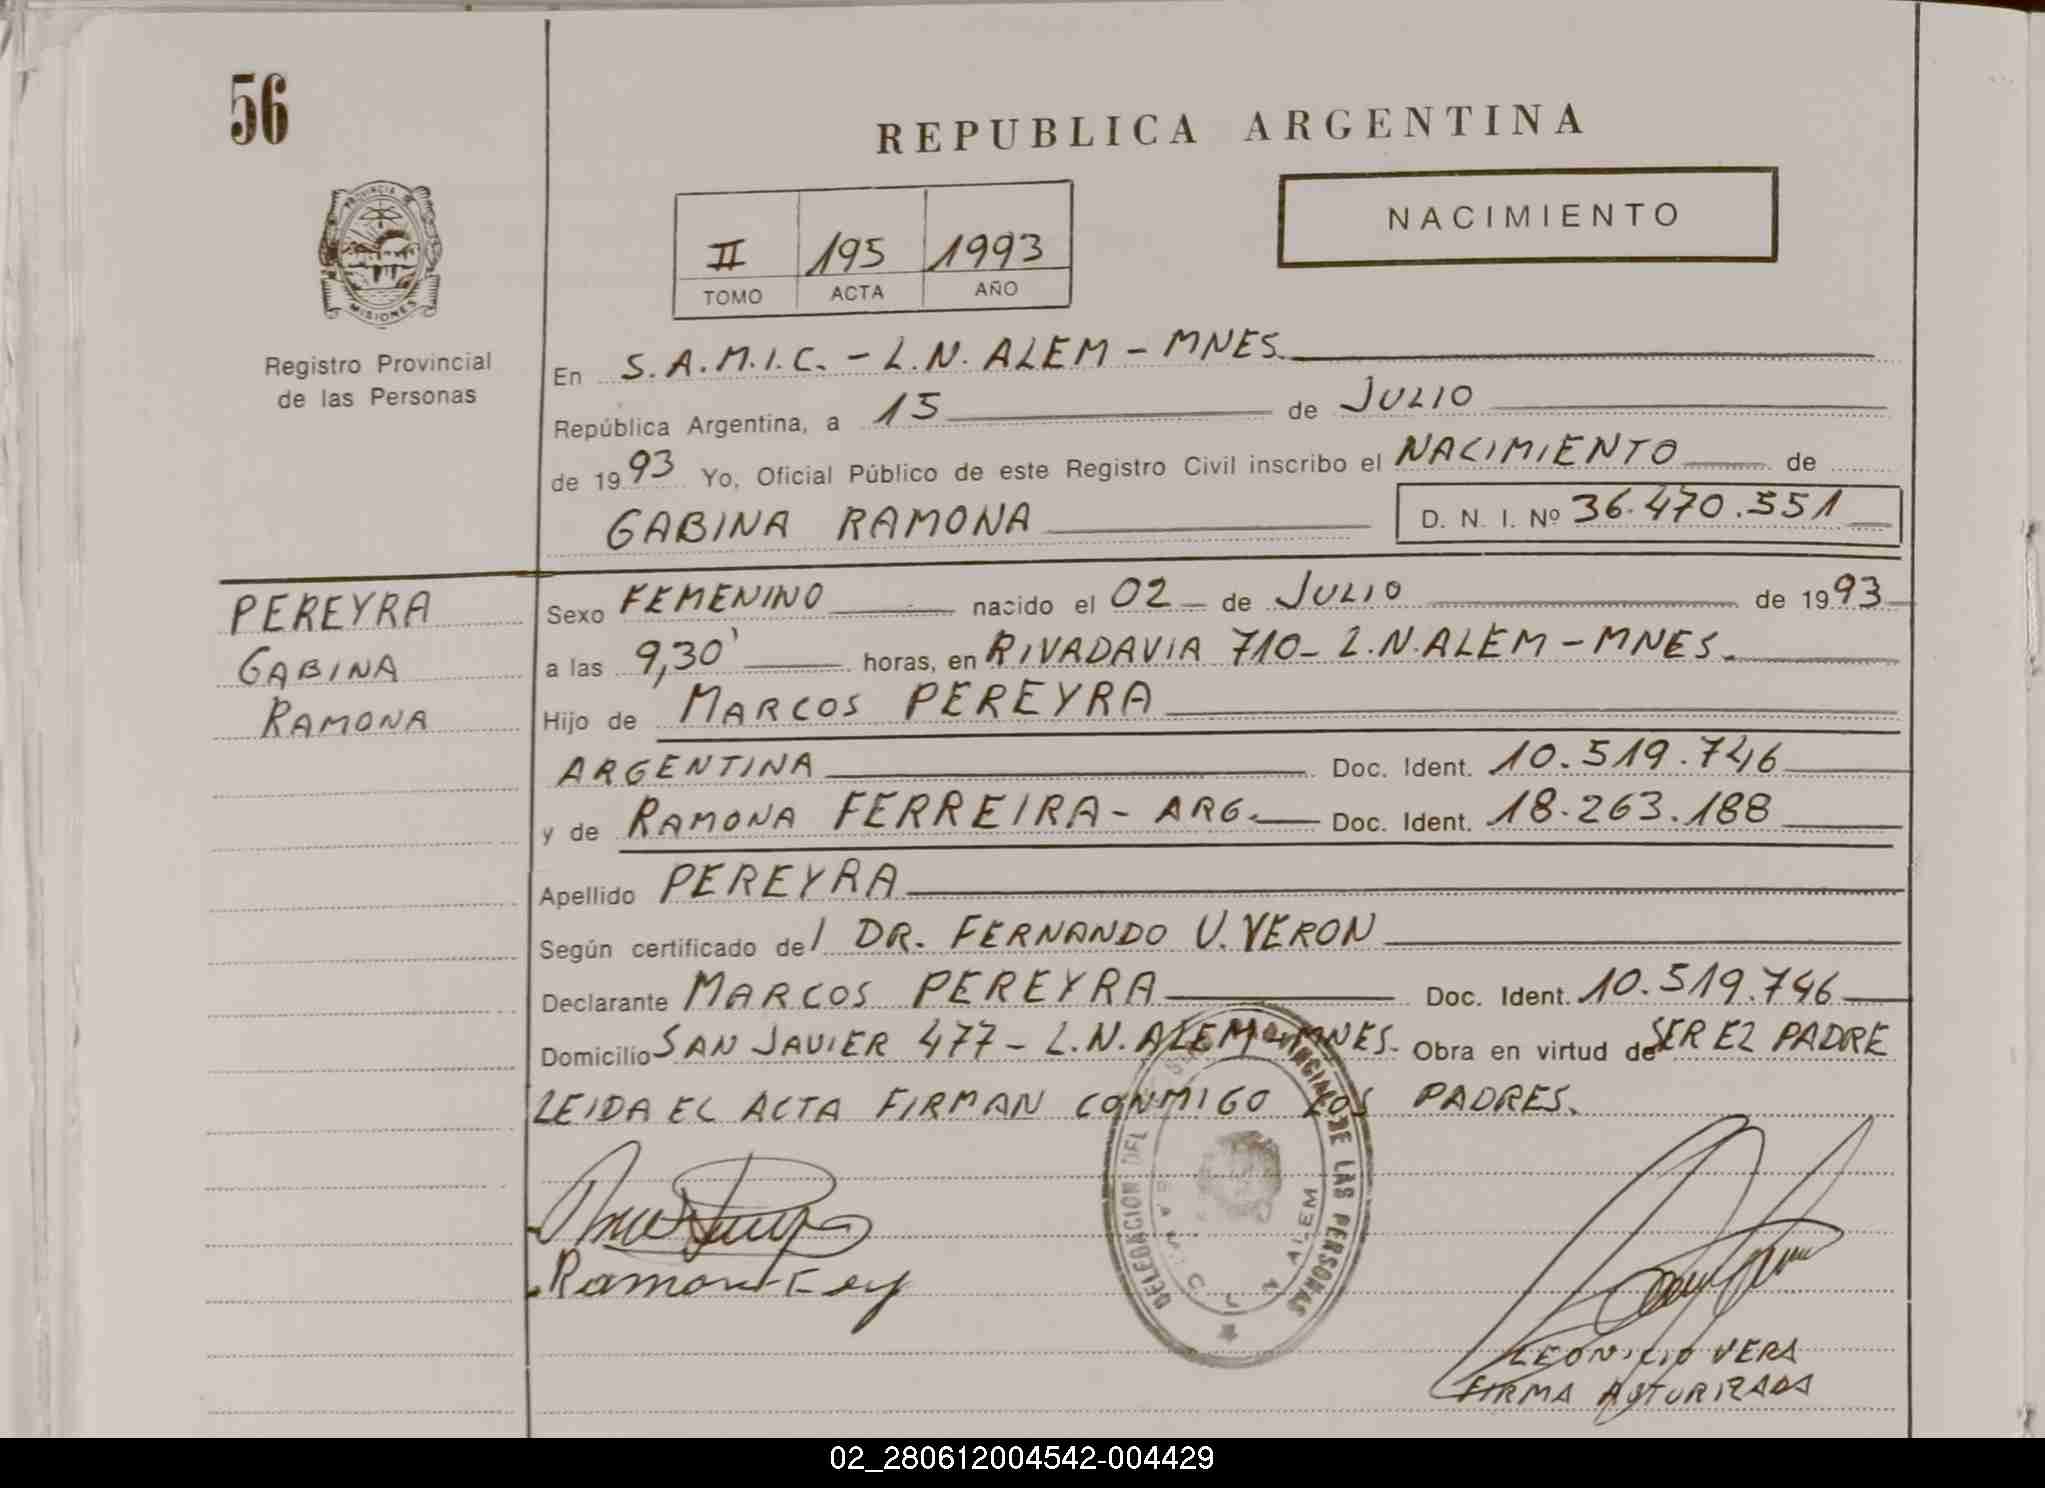 56
REPUBLICA ARGENTINA
NACIMIENTO
II 195 1993
TOMO ACTA AÑO
PROVINCIA
MISIONES
Registro Provincial
de las Personas
En S.A.M.I.C. - L.N. ALEM - MNES.
República Argentina, a 15 de JULIO
de 1993 Yo, Oficial Público de este Registro Civil inscribo el NACIMIENTO de
GABINA RAMONA D. N. I. Nº 36.470.551
PEREYRA
GABINA
RAMONA
Sexo FEMENINO nacido el 02 de JULIO de 1993
a las 9,30' horas, en RIVADAVIA 710 - L.N. ALEM - MNES.
Hijo de MARCOS PEREYRA
ARGENTINA Doc. Ident. 10.519.746
y de RAMONA FERREIRA - ARG. Doc. Ident. 18.263.188
Apellido PEREYRA
Según certificado del DR. FERNANDO U. VERON
Declarante MARCOS PEREYRA Doc. Ident. 10.519.746
Domicilio SAN JAVIER 477 - L.N. ALEM - MNES. Obra en virtud de SER EL PADRE
LEIDA EL ACTA FIRMAN CONMIGO LOS PADRES.
DELEGACION DEL PROVINCIAL DE LAS PERSONAS
ALEM
LEONICIO VERA
FIRMA AUTORIZADA
02_280612004542-004429